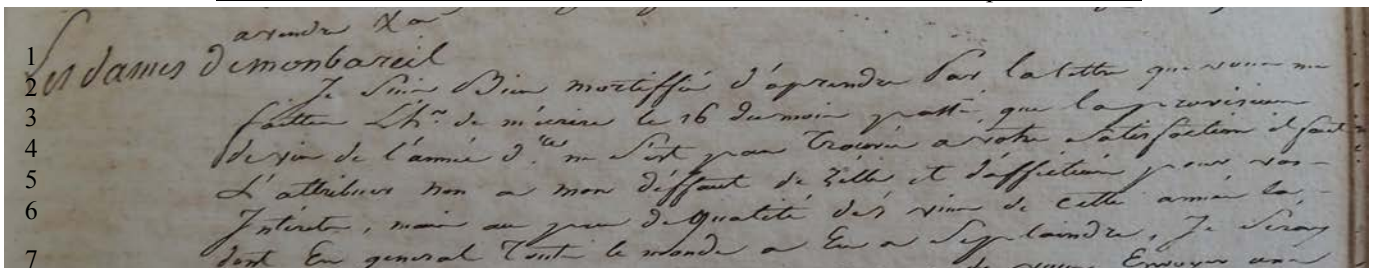 avendre Xa
1
Les dames Demonbareil
2
Je Suis Bien mortiffié d'aprendre Par la lettre que vous me
3
faittes L'hr. de m'ecrire le 16 du mois passé, que la provision
4
de vin de l'année d.re ne S'est pas Trouvée a votre Satisfaction il faut
5
L'attribuer non a mon déffaut de Zelle et d'affection pour vos
6
Intérets, mais au peu de qualité des vins de cette année la
7
dont En general Tout le monde a Eu a Se plaindre, Je Seray
de vous Envoyer une